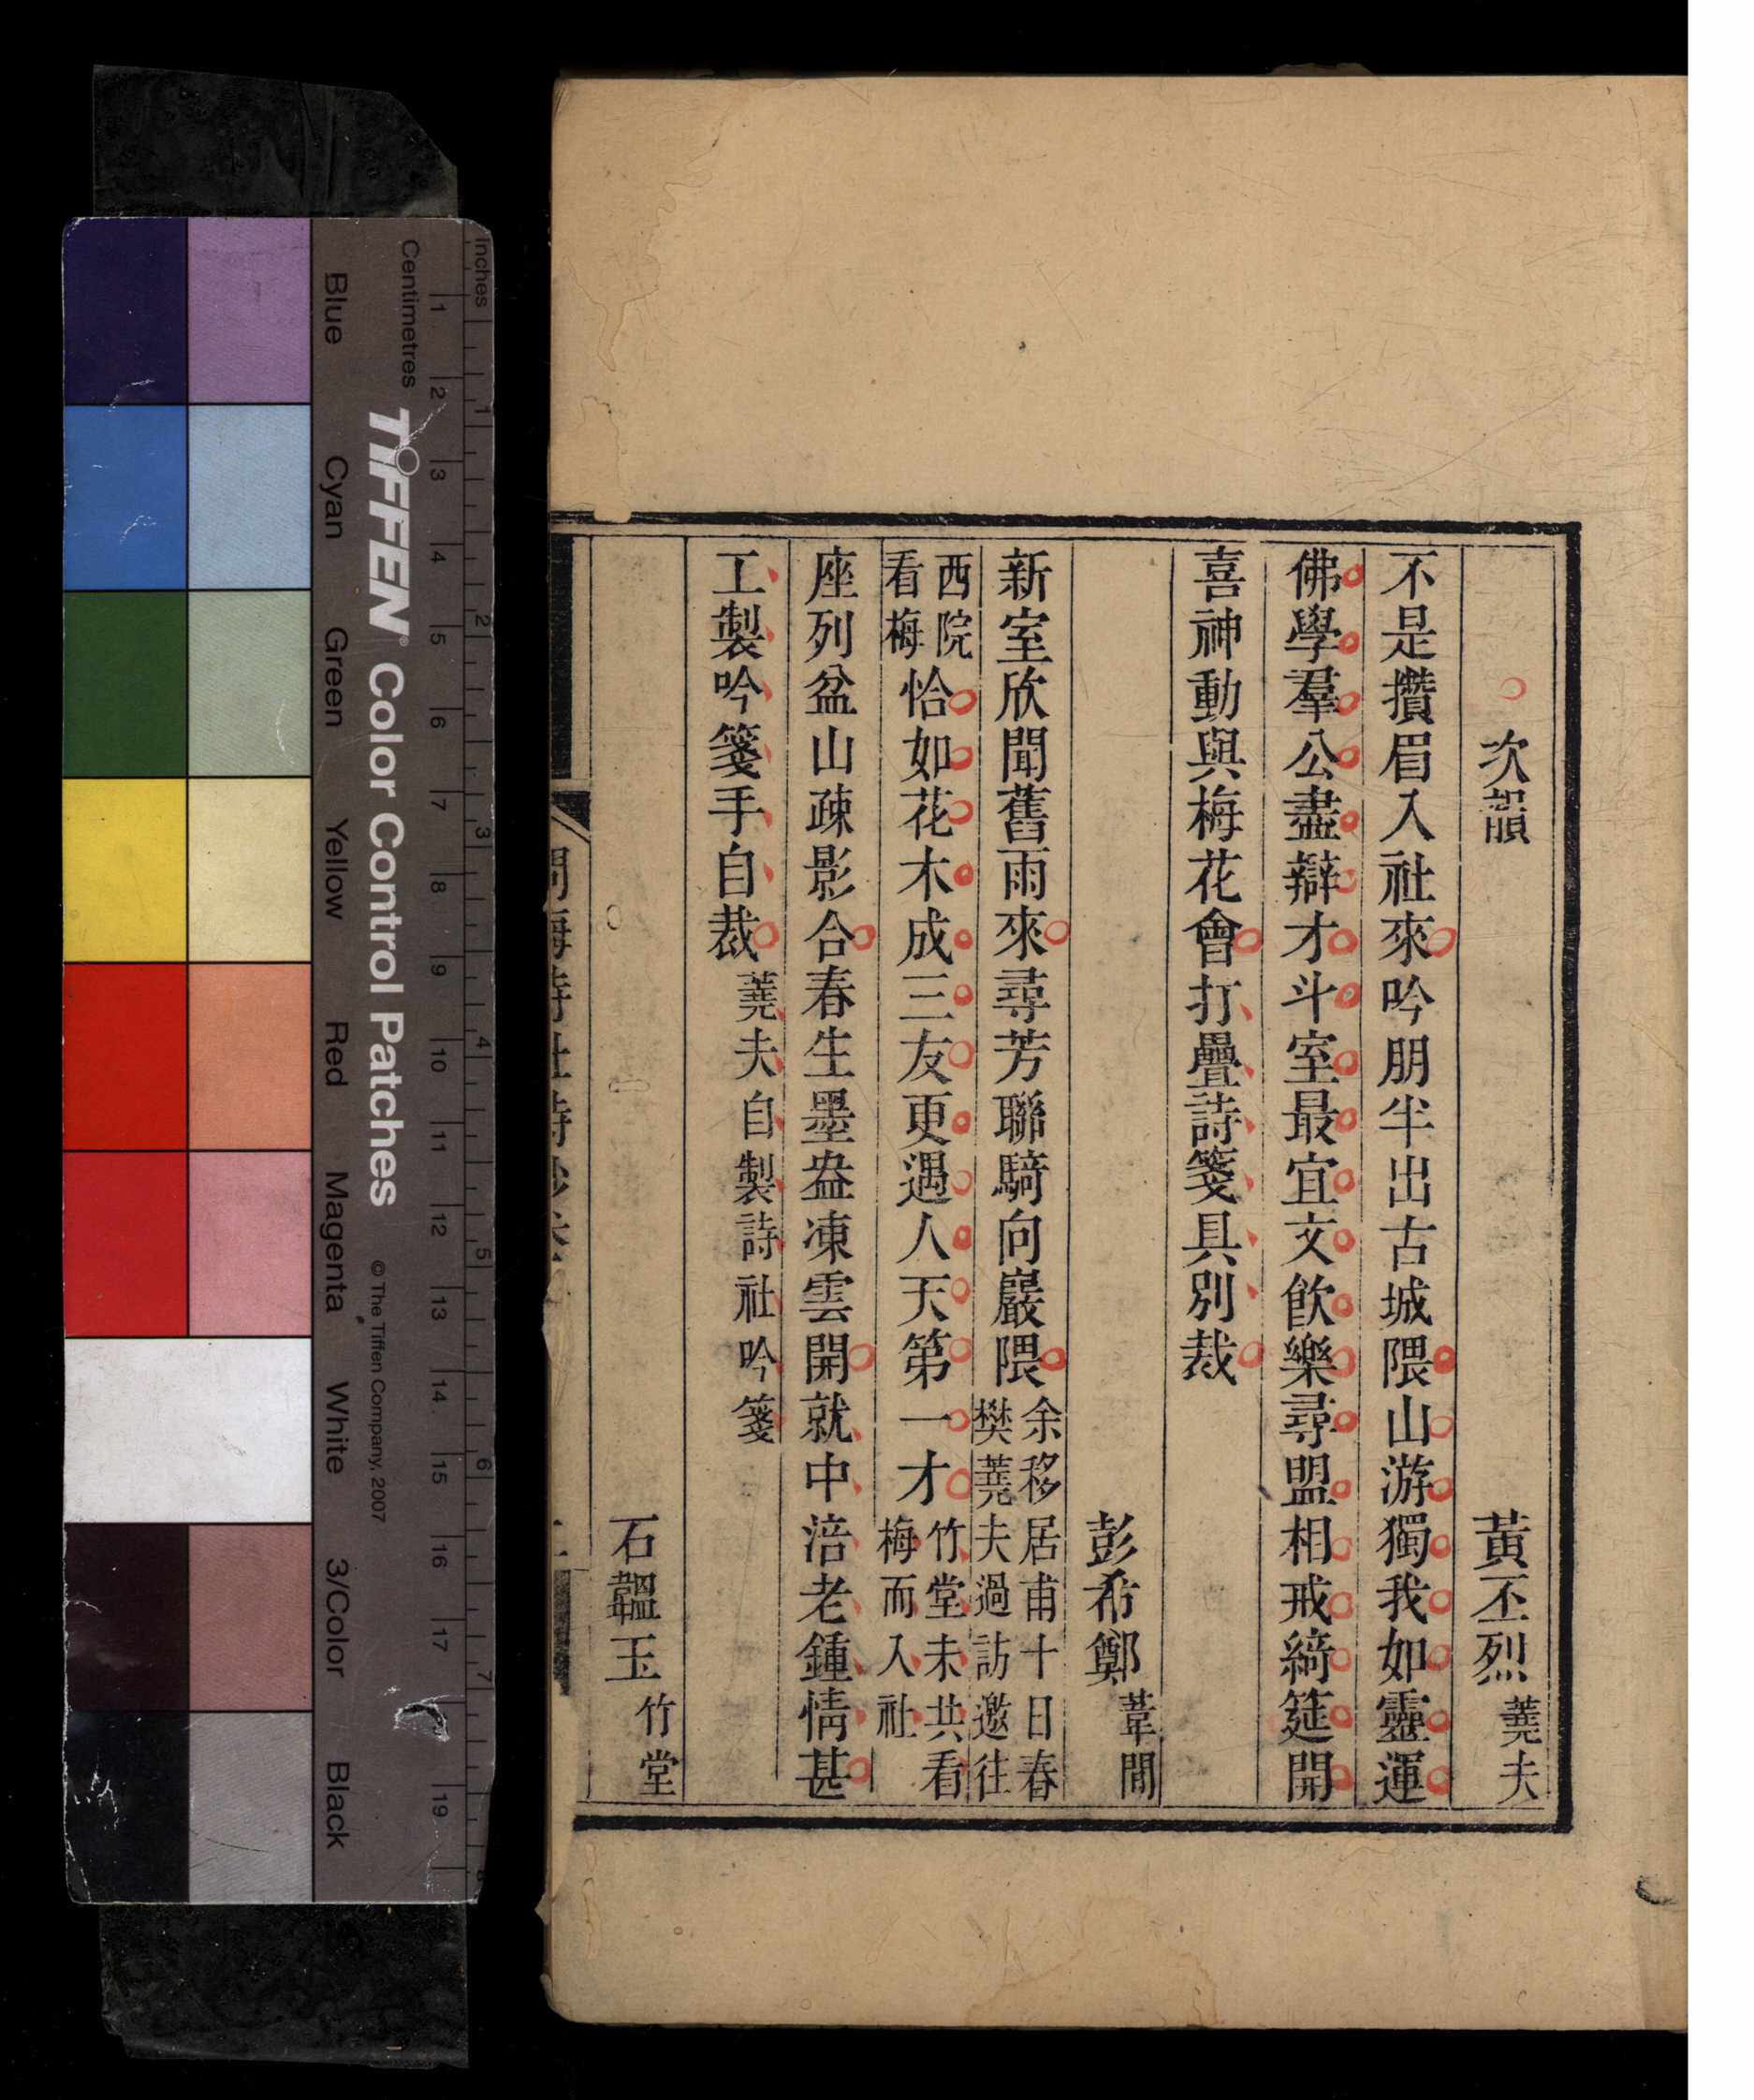 次韻　黃丕烈 蕘夫
不是攢眉入社來吟朋半出古城隈山游獨我如靈運
佛學羣公盡辯才斗室最宜文飮樂尋盟相戒綺筵開
喜神動與梅花會打疊詩箋具別裁
彭希鄭 葦閒
新室欣聞舊雨來尋芳聯騎向巖隈余移居甫十日春樊蕘夫過訪邀往
西院看梅恰如花木成三友更遇人天第一才竹堂未共看梅而入社
座列盆山疎影合春生墨盎凍雲開就中涪老鍾情甚
工製吟箋手自裁蕘夫自製詩社吟箋
石韞玉 竹堂
Inches
Centimetres
1 2 3 4 5 6 7 8 9 10 11 12 13 14 15 16 17 19
1 2 3 4 5 6 7 8
TIFFEN® Color Control Patches © The Tiffen Company, 2007
Blue Cyan Green Yellow Red Magenta White 3/Color Black